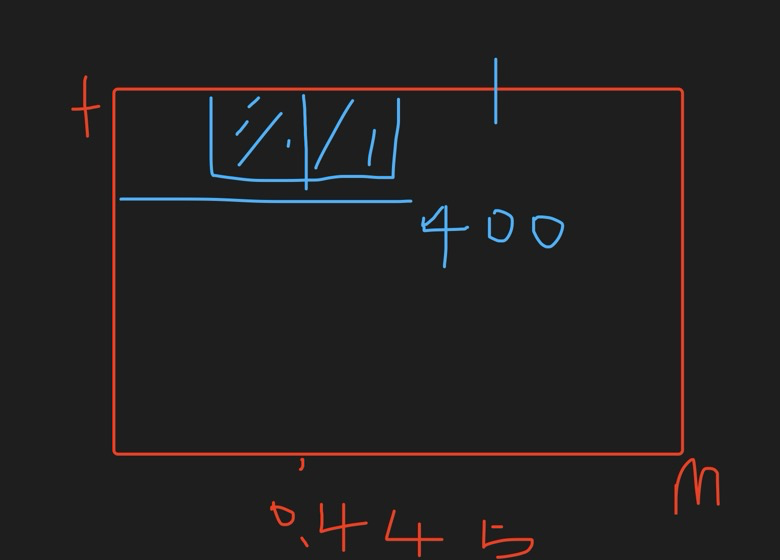 t
400
m
0.445